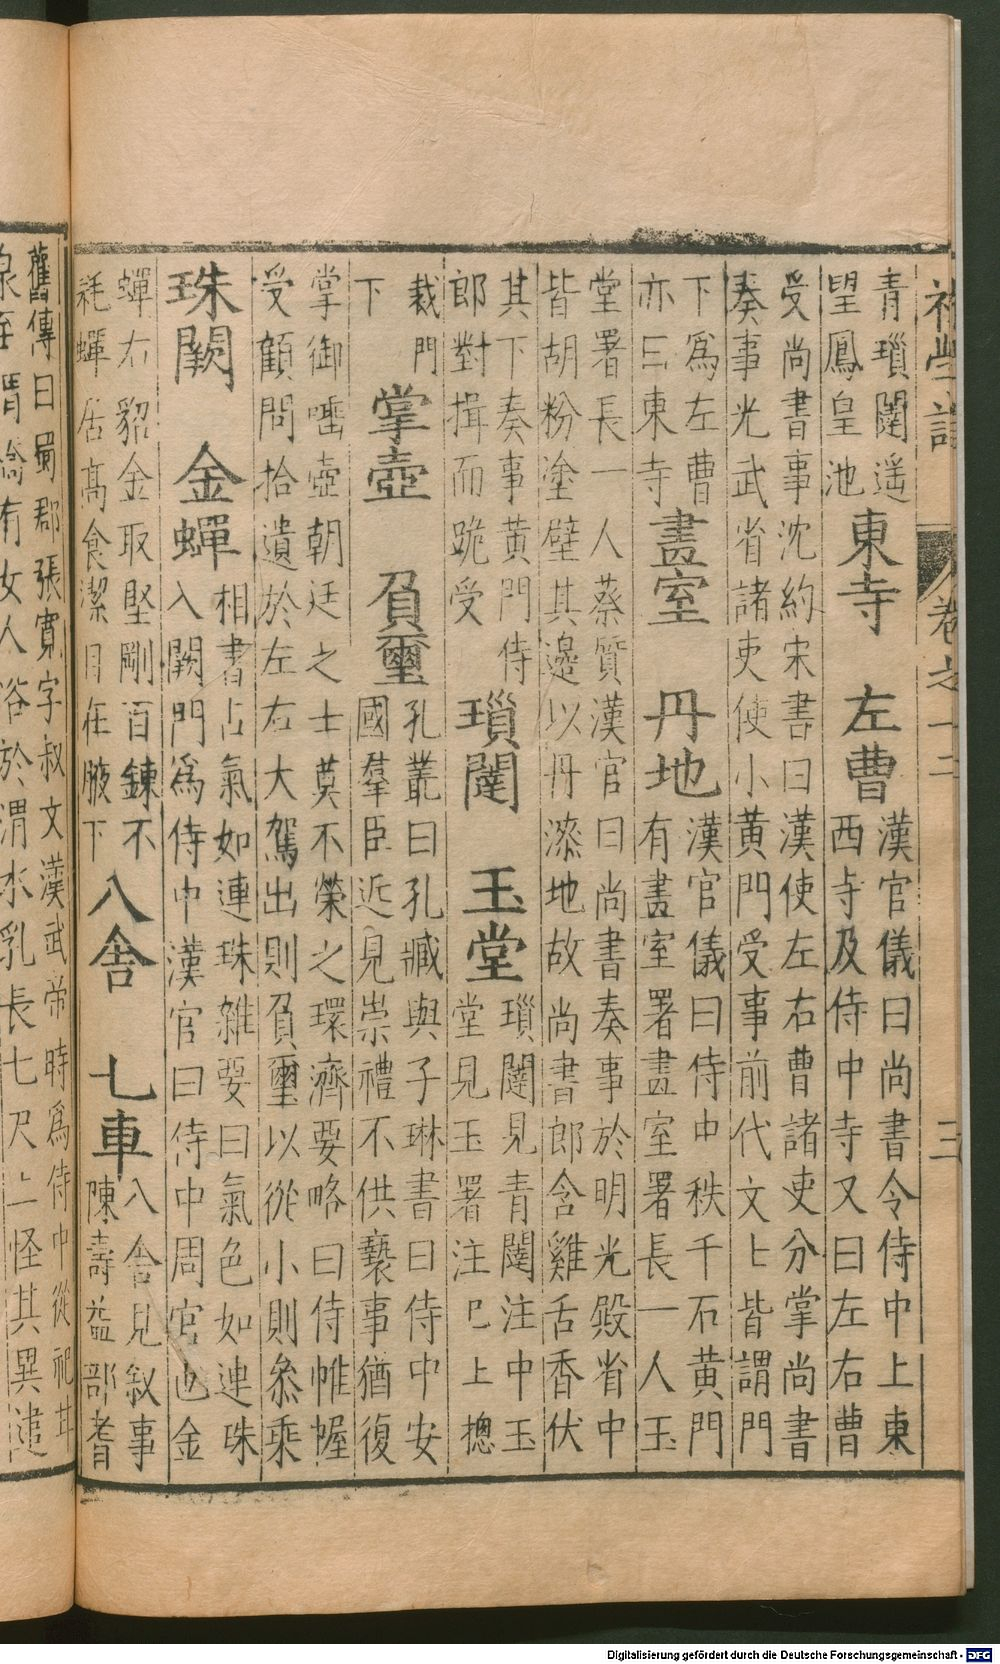 初學記 卷之十二 三
青瑣闥遥
望鳳皇池
東寺 左曹
漢官儀曰尚書令侍中上東
西寺及侍中寺又曰左右曹
受尚書事沈約宋書曰漢使左右曹諸吏分掌尚書
奏事光武省諸吏使小黃門受事前代文士皆謂門
下爲左曹
亦曰東寺
畫室 丹地
漢官儀曰侍中秩千石黃門
有畫室署畫室署長一人玉
堂署長一人蔡質漢官曰尚書奏事於明光殿省中
皆胡粉塗壁其邊以丹漆地故尚書郎含雞舌香伏
其下奏事黃門侍
郎對揖而跪受
瑣闥 玉堂
瑣闥見青闥注中玉
堂見玉署注巳上揔
裁門
下
掌壺 負璽
孔叢曰孔臧與子琳書曰侍中安
國羣臣近見崇禮不供褻事猶復
掌御唾壺朝廷之士莫不榮之環濟要略曰侍帷幄
受顧問拾遺於左右大駕出則負璽以從小則叅乘
珠闕 金蟬
相書占氣如連珠雜要曰氣色如連珠
入闕門爲侍中漢官曰侍中周官也金
蟬右貂金取堅剛百鍊不
耗蟬居高食潔目在腋下
八舍 七車
八舍見叙事
陳壽益部耆
舊傳曰蜀郡張寛字叔文漢武帝時爲侍中從祀甘
泉至渭橋有女人浴於渭水乳長七尺上怪其異遣
Digitalisierung gefördert durch die Deutsche Forschungsgemeinschaft - DFG